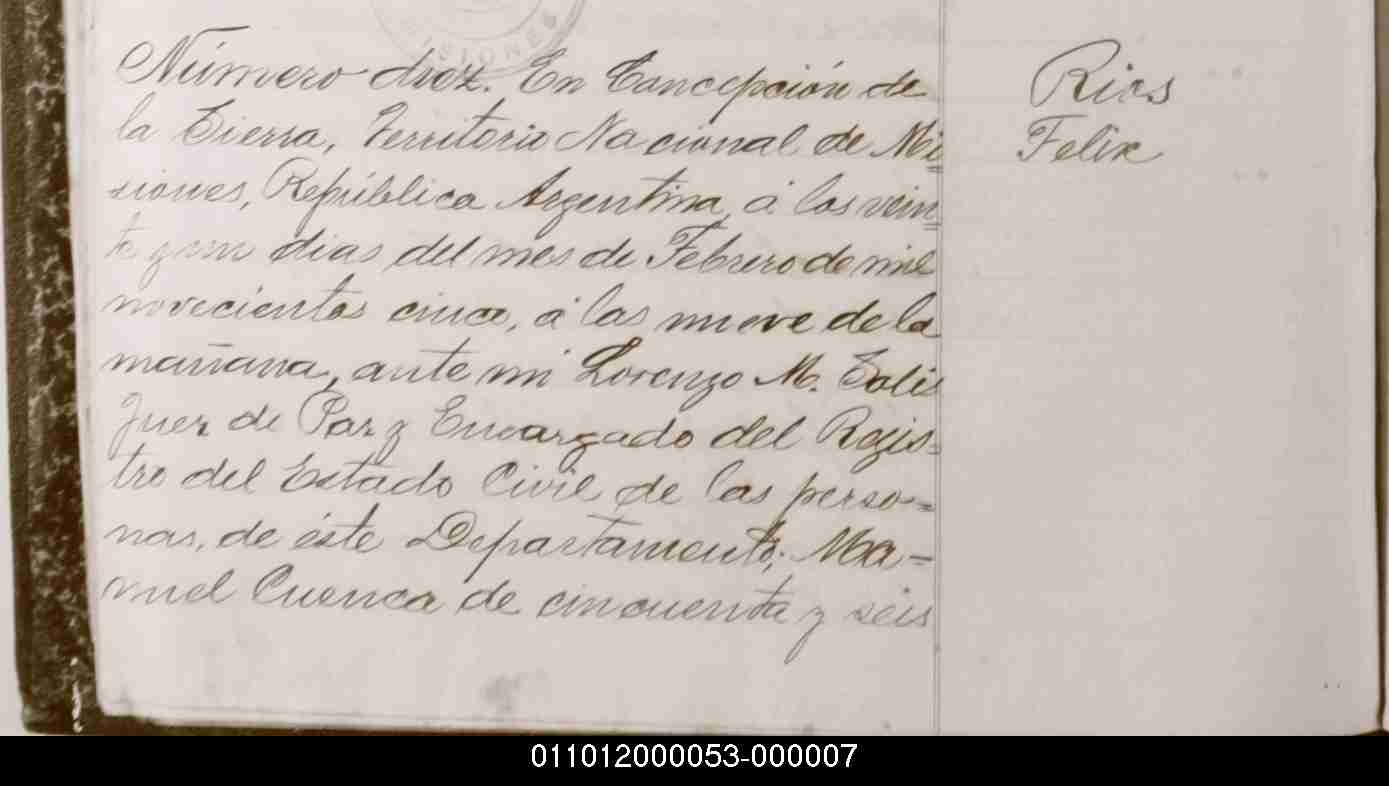 MISIONES
Número diez. En Concepción de
la Sierra, Territorio Nacional de Mi=
siones, República Argentina, á los vein=
te y un dias del mes de Febrero de mil
novecientos cinco, á las nueve de la
mañana, ante mi Lorenzo M. Solis
Juez de Paz y Encargado del Regis=
tro del Estado Civil de las perso=
nas, de éste Departamento; Ma=
nuel Cuenca de cincuenta y séis
Rios
Felix
011012000053-000007